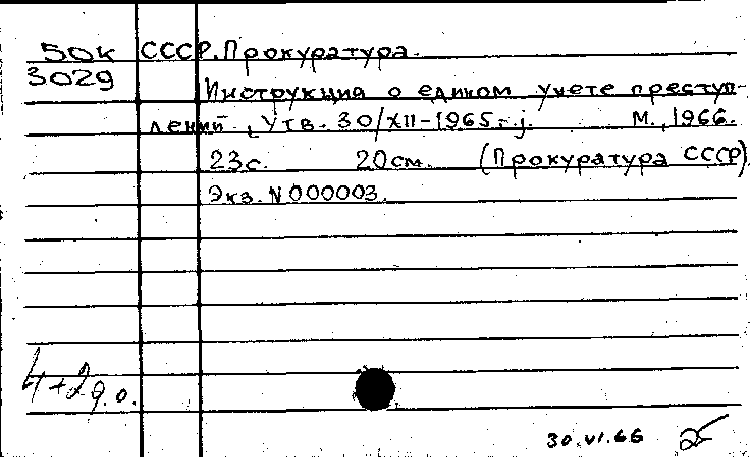 50к СССР. Прокуратура.
3029
Инструкция о едином учете преступ-
лений. [Утв. 30/XII-1965 г.]. М., 1966.
23с. 20см. (Прокуратура СССР)
Экз. N 000003.
4+2 д.о.
30.VI.66